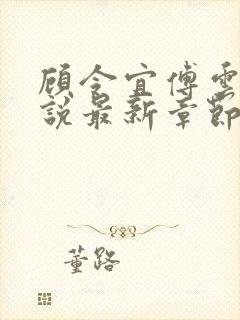 顾令宜傅雲
説最新章節
董路